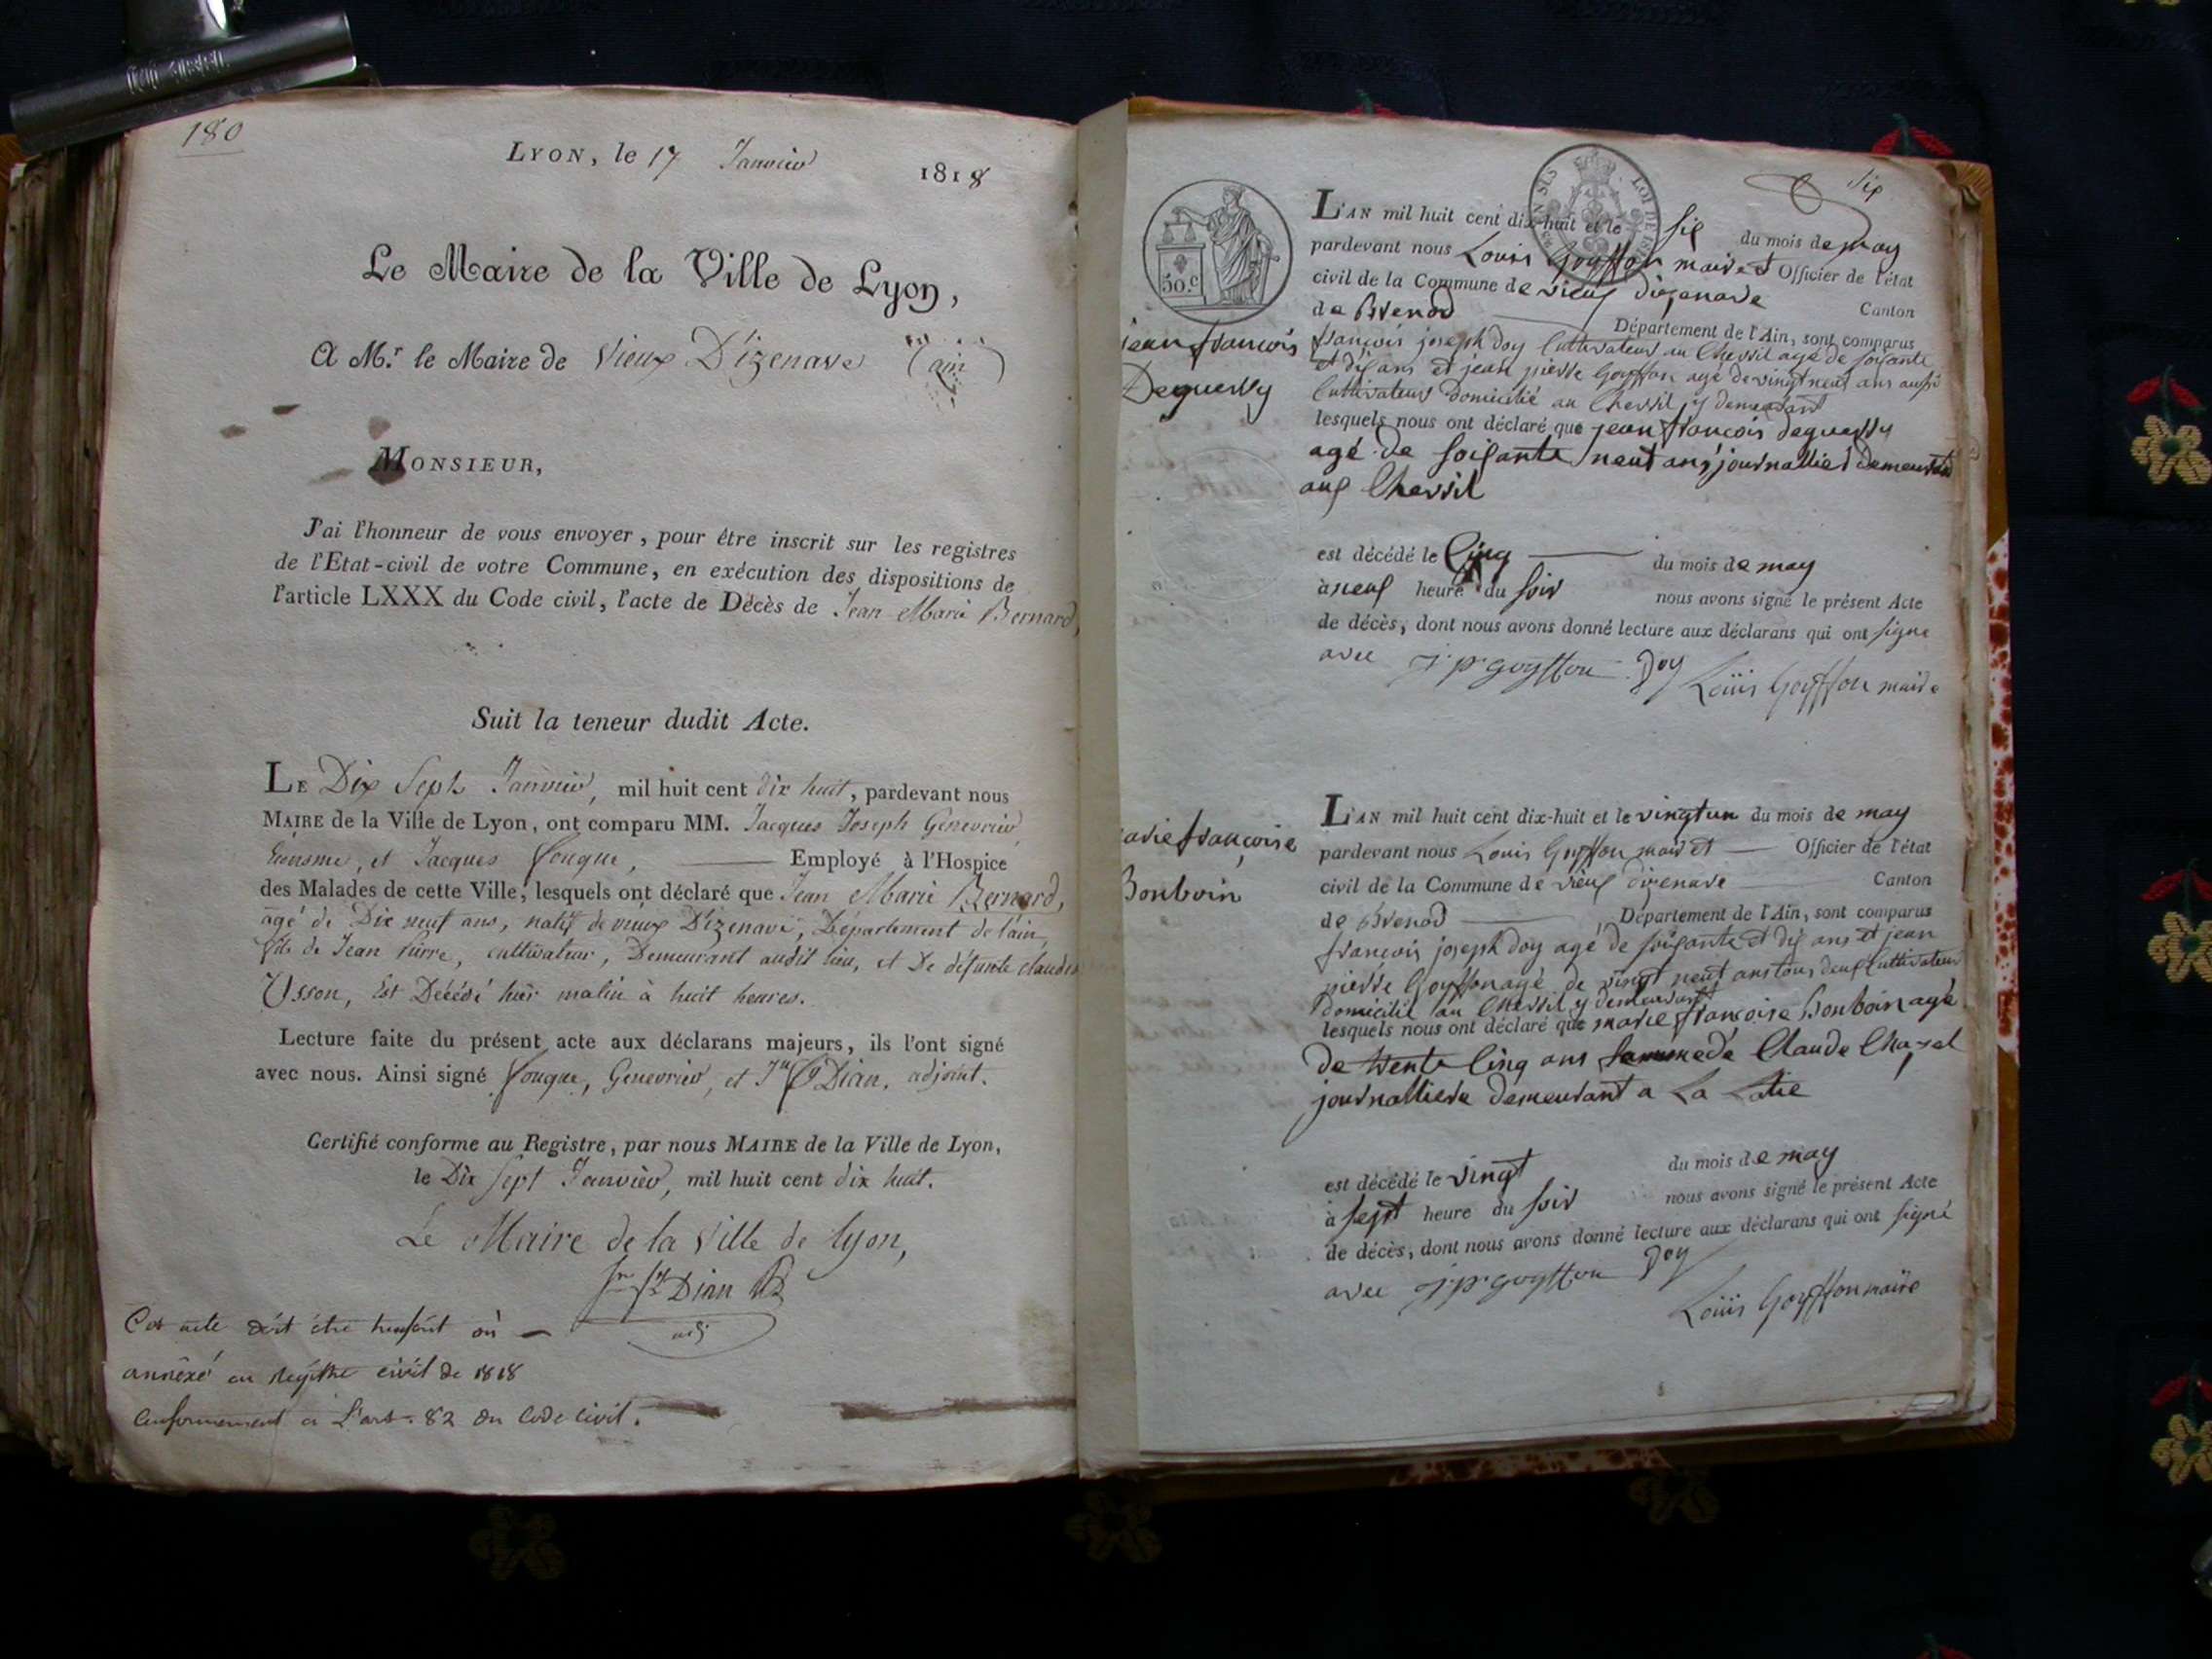 180
LYON, le 17 Janvier 1818
Le Maire de la Ville de Lyon,
A M.r le Maire de Vieux D'izenave (ain)
MONSIEUR,
J'ai l'honneur de vous envoyer, pour être inscrit sur les registres
de l'Etat-civil de votre Commune, en exécution des dispositions de
l'article LXXX du Code civil, l'acte de Décès de Jean Marie Bernard,
Suit la teneur dudit Acte.
LE Dix Sept Janvier, mil huit cent dix huit, pardevant nous
MAIRE de la Ville de Lyon, ont comparu MM. Jacques Joseph Genevrier
et Jacques Fouque, Employé à l'Hospice
des Malades de cette Ville, lesquels ont déclaré que Jean Marie Bernard,
agé de Dix neuf ans, natif de vieux D'izenave, Département de l'ain,
fils de Jean Pierre, cultivateur, Demeurant audit lieu, et De défunte claudine
Ysson, Est Décédé hier matin à huit heures.
Lecture faite du présent acte aux déclarans majeurs, ils l'ont signé
avec nous. Ainsi signé Fouque, Genevrier, et Dian, adjoint.
Certifié conforme au Registre, par nous MAIRE de la Ville de Lyon,
le Dix Sept Janvier, mil huit cent dix huit.
Le Maire de la Ville de Lyon,
Dian
adj
Cet acte doit être transcrit où
annéxé au Régistre civil de 1818
Conformement à L'art. 82 du Code civil.
six
50.c
LOI DE
L'AN mil huit cent dix-huit et le six du mois de may
pardevant nous Louis Goyffon maire et Officier de l'état
civil de la Commune de vieux dizenave Canton
de Brenod Département de l'Ain, sont comparus
jean francois
Deguerry
françois joseph doy Cultivateur au Chevril agé de soixante
et dix ans et jean pierre Goyffon agé de vingt neuf ans aussi
Cultivateur domicilié au Chevril y demeurant
lesquels nous ont déclaré que jean francois deguerry
agé de soixante neuf ans journallier demeurant
aux Chevril
est décédé le Cinq du mois de may
à neuf heure du soir nous avons signé le présent Acte
de décès, dont nous avons donné lecture aux déclarans qui ont signe
avec j. p. goyffon Doy Louis Goyffon maire
L'AN mil huit cent dix-huit et le vingt un du mois de may
arie françoise
pardevant nous Louis Goyffon maire et Officier de l'état
civil de la Commune de vieux dizenave Canton
Bonboin
de Brenod Département de l'Ain, sont comparus
françois joseph doy agé de soixante et dix ans et jean
pierre Goyffon agé de vingt neuf ans tous deux Cultivateur
domicilié au Chevril y demeurant
lesquels nous ont déclaré que marie francoise Bonboin agé
de trente Cinq ans femme de Claude Chazel
journalliere demeurant a La
est décédé le vingt du mois de may
à sept heure du soir nous avons signé le présent Acte
de décès, dont nous avons donné lecture aux déclarans qui ont signé
avec j. p. goyffon Doy
Louis Goyffon maire